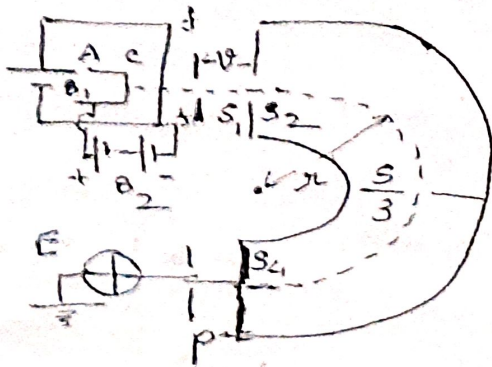 A C
B₁
+ B₂ -
+
- V -
S₁ S₂
r
S
3
E
S₄
P